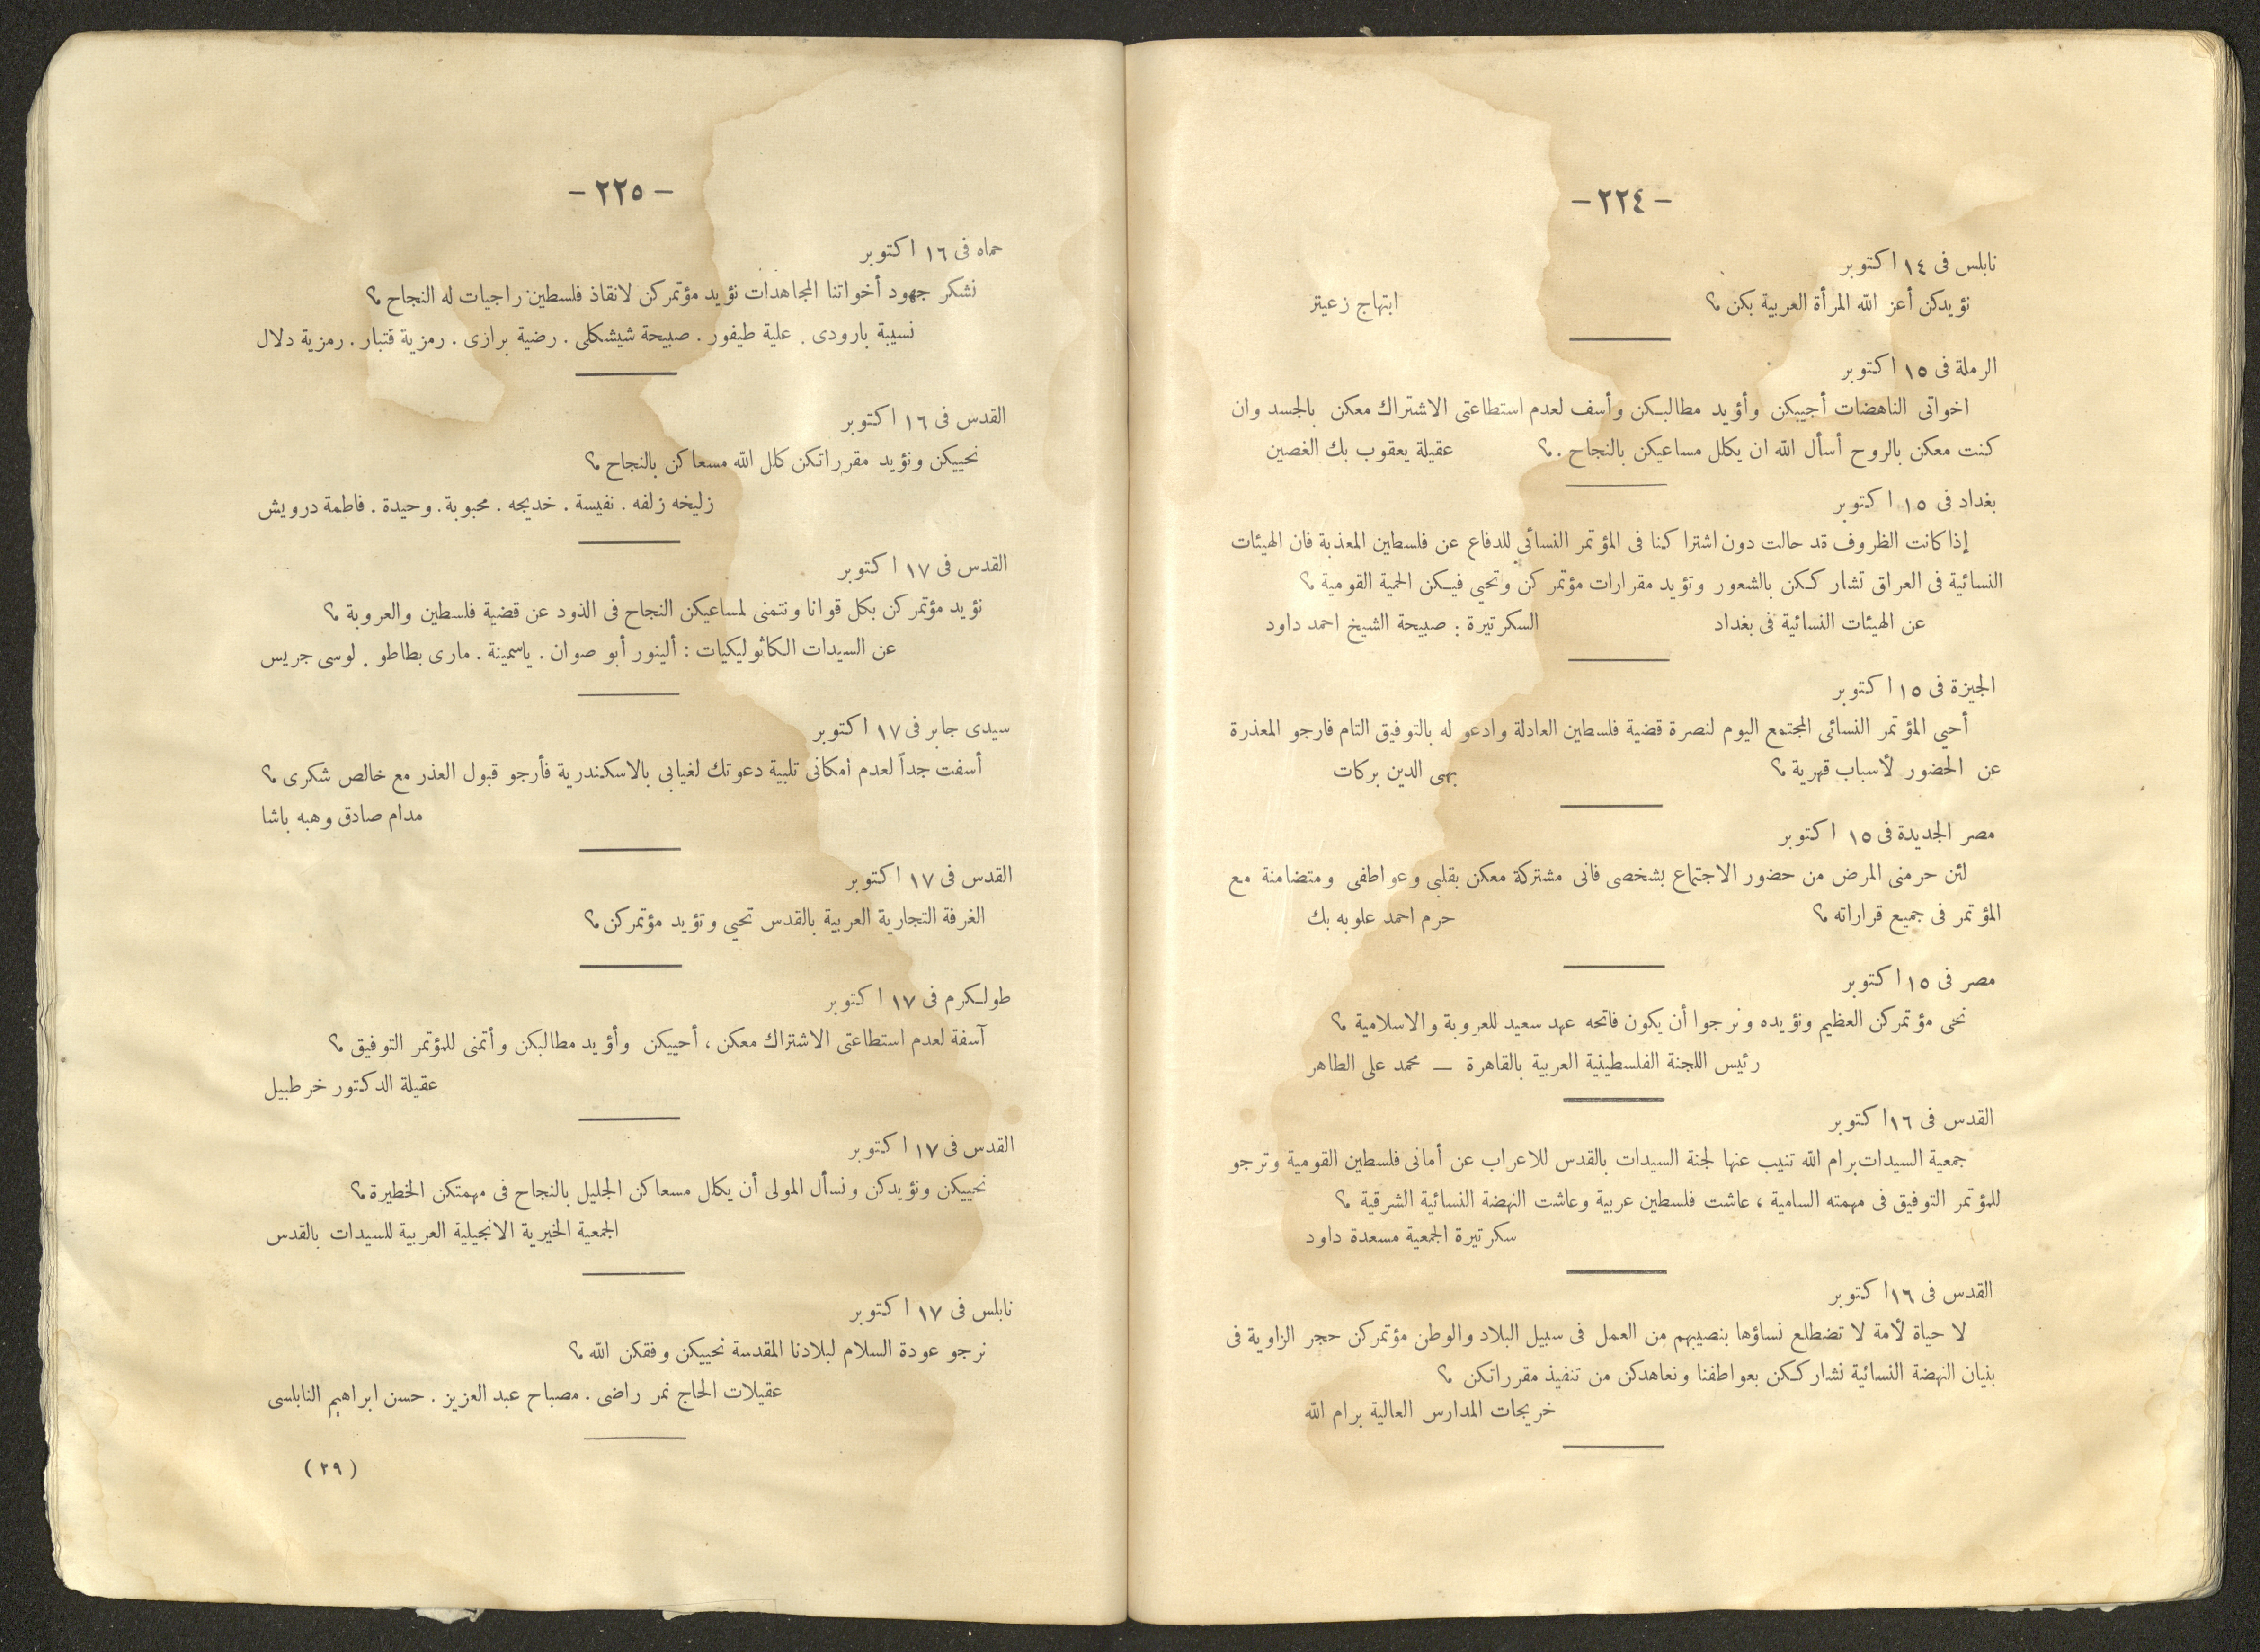 - ٢٢٤ -
نابلس فى ١٤ اكتوبر
نؤيدكن أعز الله المرأة العربية بكن ؟ ابتهاج زعيتر
الرملة فى ١٥ اكتوبر
اخواتى الناهضات أجيبكن وأؤيد مطالبكن وأسف لعدم استطاعتى الاشتراك معكن بالجسد وان
كنت معكن بالروح أسأل الله ان يكلل مساعيكن بالنجاح . ؟ عقيلة يعقوب بك الغصين
بغداد فى ١٥ اكتوبر
إذا كانت الظروف قد حالت دون اشتراكنا فى المؤتمر النسائي للدفاع عن فلسطين المعذبة فان الهيئات
النسائية فى العراق تشاركـكن بالشعور وتؤيد مقرارات مؤتمركن وتحيي فيكن الحمية القومية ؟
عن الهيئات النسائية فى بغداد السكرتيرة : صبيحة الشيخ احمد داود
الجيزة فى ١٥ اكتوبر
أحيي المؤتمر النسائى المجتمع اليوم لنصرة قضية فلسطين العادلة وادعو له بالتوفيق التام فارجو المعذرة
عن الحضور لأسباب قهرية ؟ بهى الدين بركات
مصر الجديدة فى ١٥ اكتوبر
لئن حرمنى المرض من حضور الاجتماع بشخصى فانى مشتركة معكن بقلبى وعواطفى ومتضامنة مع
المؤتمر فى جميع قراراته ؟ حرم احمد علوبه بك
مصر فى ١٥ اكتوبر
نحى مؤتمركن العظيم ونؤيده ونرجوا أن يكون فاتحه عهد سعيد للعروبة والاسلامية ؟
رئيس اللجنة الفلسطينية العربية بالقاهرة — محمد على الطاهر
القدس فى ١٦ اكتوبر
جمعية السيدات برام الله تنيب عنها لجنة السيدات بالقدس للاعراب عن أمانى فلسطين القومية وترجو
للمؤتمر التوفيق فى مهمته السامية ، عاشت فلسطين عربية وعاشت النهضة النسائية الشرقية ؟
سكرتيرة الجمعية مسعدة داود
القدس فى ١٦ اكتوبر
لا حياة لأمة لا تضطلع نساؤها بنصيبهم من العمل فى سبيل البلاد والوطن مؤتمركن حجر الزاوية فى
بنيان النهضة النسائية نشاركـكن بعواطفنا ونعاهدكن من تنفيذ مقرراتكن ؟
خريجات المدارس العالية برام الله
- ٢٢٥ -
حماه فى ١٦ اكتوبر
نشكر جهود أخواتنا المجاهدات نؤيد مؤتمركن لانقاذ فلسطين راجيات له النجاح ؟
نسيبة بارودى . علية طيفور . صبيحة شيشكلى . رضية برازى . رمزية قتبار . رمزية دلال
القدس فى ١٦ اكتوبر
نحييكن ونؤيد مقرراتكن كلل الله مسعاكن بالنجاح ؟
زليخه زلفه . نفيسة . خديجه . محبوبة . وحيدة . فاطمة درويش
القدس فى ١٧ اكتوبر
نؤيد مؤتمركن بكل قوانا ونتمنى لمساعيكن النجاح فى الذود عن قضية فلسطين والعروبة ؟
عن السيدات الكاثوليكيات : ألينور أبو صوان . ياسمينة . مارى بطاطو . لوسى جريس
سيدى جابر فى ١٧ اكتوبر
أسفت جداً لعدم امكانى تلبية دعوتك لغيابي بالاسكندرية فأرجو قبول العذر مع خالص شكرى ؟
مدام صادق وهبه باشا
القدس فى ١٧ اكتوبر
الغرفة التجارية العربية بالقدس تحيي وتؤيد مؤتمركن ؟
طولكرم فى ١٧ اكتوبر
آسفة لعدم استطاعتى الاشتراك معكن ، أحييكن وأؤيد مطالبكن وأتمنى للمؤتمر التوفيق ؟
عقيلة الدكتور خرطبيل
القدس فى ١٧ اكتوبر
نحييكن ونؤيدكن ونسأل المولى أن يكلل مسعاكن الجليل بالنجاح فى مهمتكن الخطيرة ؟
الجمعية الخيرية الانجيلية العربية للسيدات بالقدس
نابلس فى ١٧ اكتوبر
نرجو عودة السلام لبلادنا المقدسة نحييكن وفقكن الله ؟
عقيلات الحاج نمر راضى . مصباح عبد العزيز . حسن ابراهيم النابلسى
( ٢٩ )